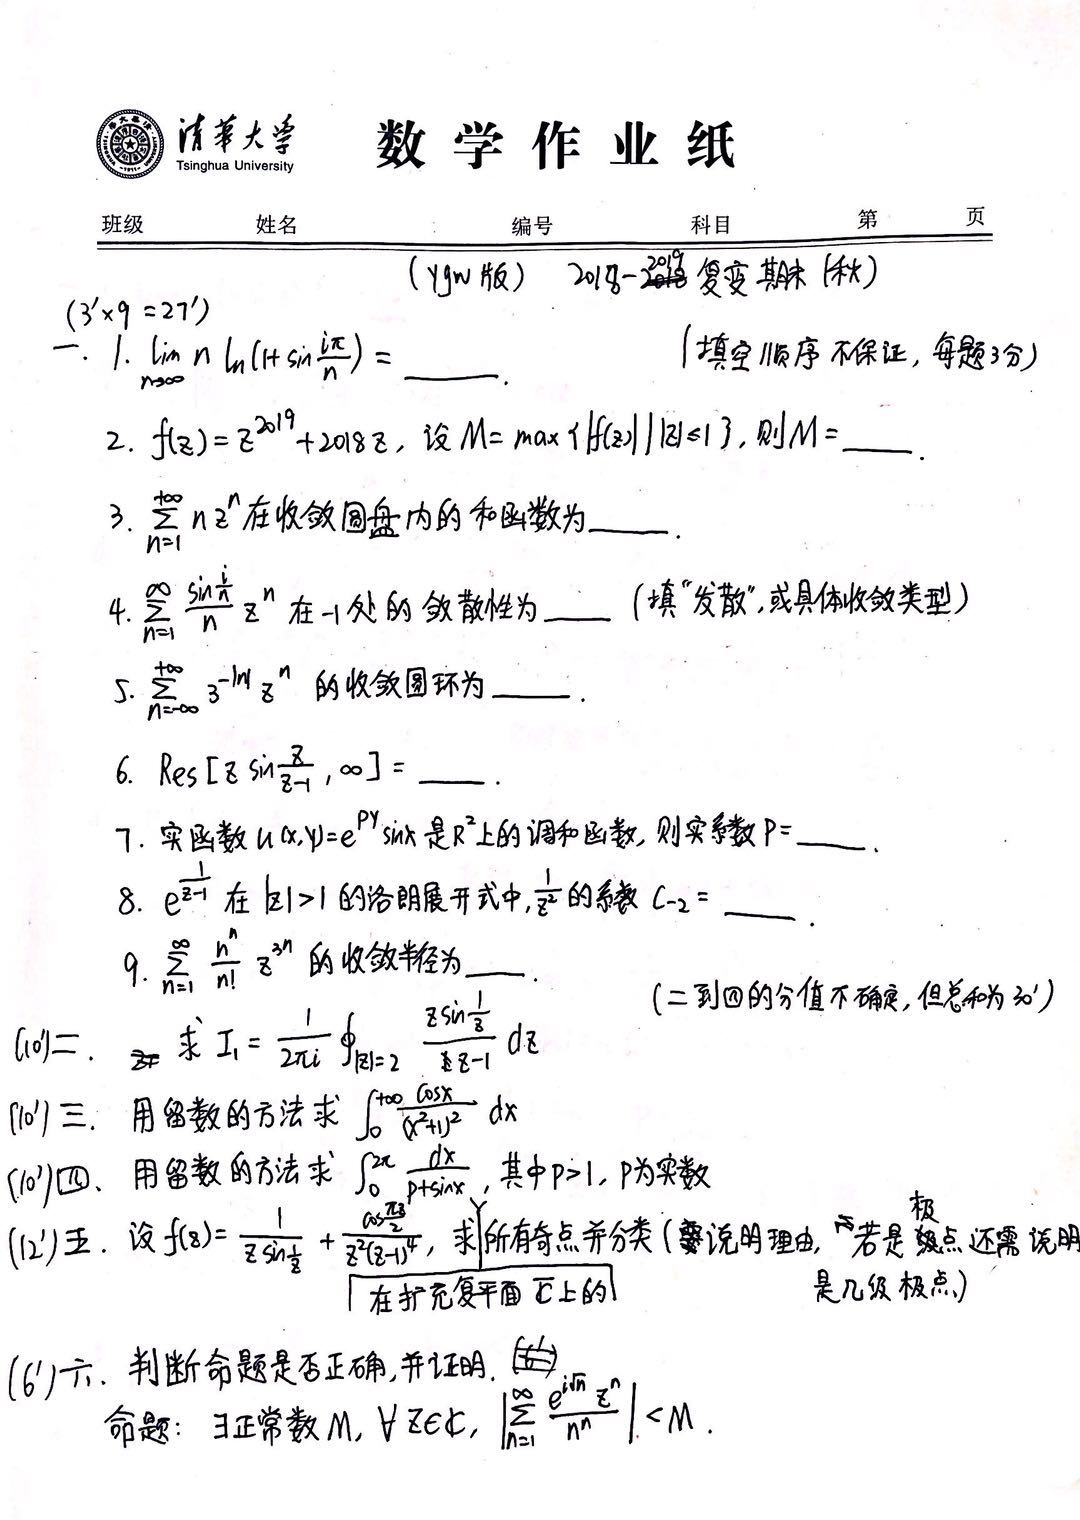 清华大学 数学作业纸
Tsinghua University
班级 姓名 编号 科目 第 页
(ygw版) 2018-2019 复变期末(秋)
(3'×9=27')
一. 1. lim n→∞ n ln(1+sin iπ/n) = ____. (填空顺序不保证, 每题3分)
2. f(z)=z^2019+2018z, 设M=max{|f(z)| | |z|≤1}, 则M=____.
3. ∑_{n=1}^{+∞} nz^n 在收敛圆盘内的和函数为____.
4. ∑_{n=1}^{∞} (sin i/n)/n z^n 在-1处的敛散性为____ (填"发散",或具体收敛类型)
5. ∑_{n=-∞}^{+∞} 3^{-|n|} z^n 的收敛圆环为____.
6. Res[z sin z/(z-1), ∞] = ____.
7. 实函数u(x,y)=e^{py}sinx是R²上的调和函数, 则实系数P=____.
8. e^{1/(z-1)} 在|z|>1的洛朗展开式中, 1/z² 的系数 C_{-2}=____.
9. ∑_{n=1}^{∞} n^n/n! z^{3n} 的收敛半径为____.
(二到四的分值不确定, 但总和为30')
(10')二. 求 I₁ = 1/(2πi) ∮_{|z|=2} (z sin 1/z)/(z-1) dz
(10')三. 用留数的方法求 ∫_0^{+∞} cosx/(x²+1)² dx
(10')四. 用留数的方法求 ∫_0^{2π} dx/(p+sinx), 其中p>1, p为实数
(12')五. 设f(z)= 1/(z sin 1/z) + (cos πz/2)/(z²(z-1)^4), 求所有奇点并分类(要说明理由, 若是极点还需说明
在扩充复平面 C̅ 上的 是几级极点)
(6')六. 判断命题是否正确,并证明.
命题: ∃正常数M, ∀z∈ℂ, |∑_{n=1}^{∞} e^{i√n} z^n / n^n| < M.